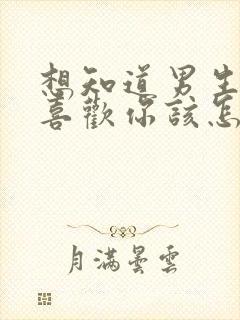 想知道男生
喜歡你該怎
月滿曇雲